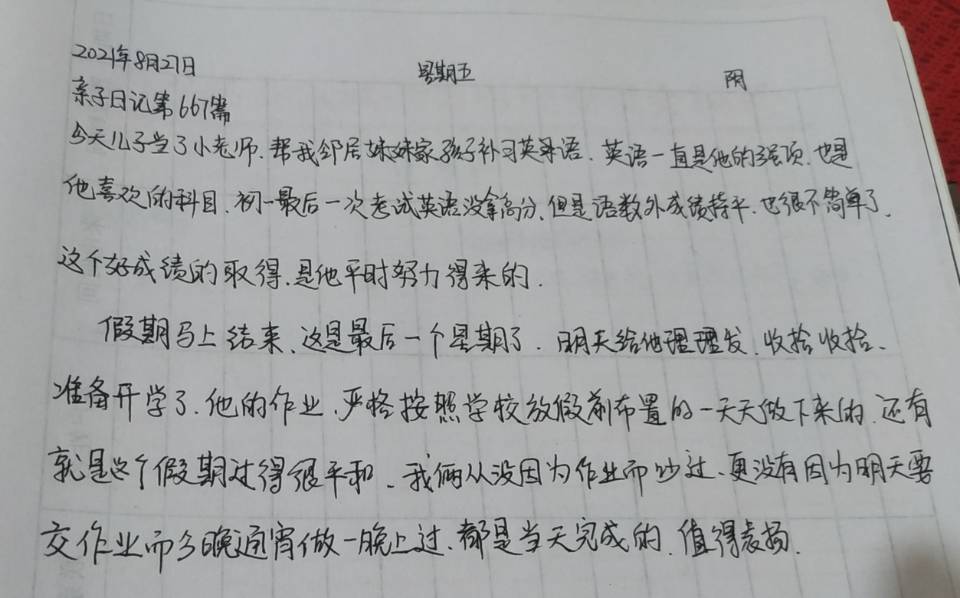 2021年8月27日 星期五 阴
亲子日记第667篇
今天儿子当了小老师.帮我邻居妹妹家孩子补习英语.英语一直是他的强项.也是
他喜欢的科目.初一最后一次考试英语没拿高分.但是语数外成绩持平.也很不简单了.
这个好成绩的取得.是他平时努力得来的.
假期马上结束、这是最后一个星期了.明天给他理理发.收拾收拾、
准备开学了.他的作业.严格按照学校放假前布置的一天天做下来的.还有
就是这个假期过得很平和、我俩从没因为作业而吵过、更没有因为明天要
交作业而今晚通宵做一晚上过.都是当天完成的.值得表扬.